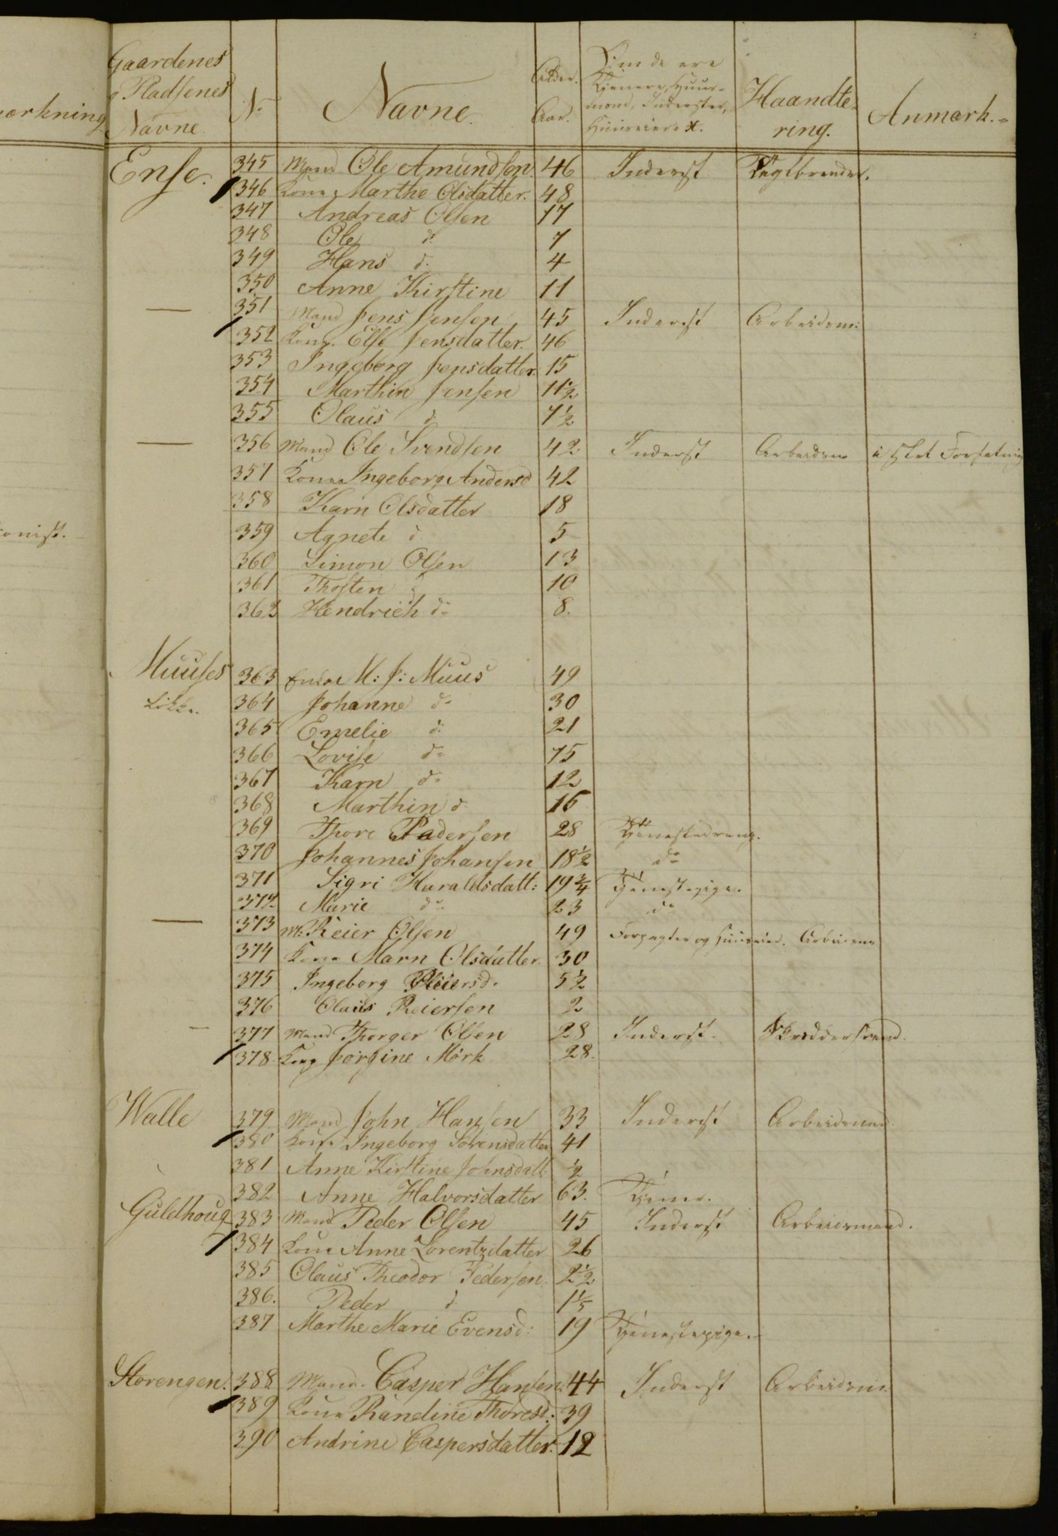 Gaardenes
og Pladsenes
Navne.
No
Navne.
Alder.
Aar.
Om de ere
Tjenere, Huus-
mænd, Inderster,
Huuseiere &.
Haandte-
ring.
Anmærk.
ærkning
Ense. 345 Mand Ole Amundsen. 46 Inderst Teglbrænder.
346 Kone Marthe Olsdatter. 48
347 Andreas Olsen 17
348 Ole do 7
349 Hans do 4
350 Anne Kirstine 11
— 351 Mand Jens Jensen 45 Inderst Arbeidsm:
352 Kone Else Jensdatter. 46
353 Ingeborg Jensdatter 15
354 Marthin Jensen 11½
355 Olaus do 7½
— 356 Mand Ole Svendsen 42 Inderst Arbeidsm i slet Forfatning
357 Kone Ingeborg Andersd 42
358 Karn Olsdatter 18
359 Agnete do 5
onist.
360 Simon Olsen 13
361 Thosten do 10
362 Hendrich do 8.
Muuses 363 Enke M: J: Muus 49
Løkke. 364 Johanne do 30
365 Emelie do 21
366 Lovise do 15
367 Karn do 12
368 Marthin do 16
369 Thore Pedersen 28 Tjenestedreng.
370 Johannes Johansen 18½ do
371 Sigri Haraldsdatt: 19¾ Tjenestepige.
372 Marie do 23 do
— 373 M. Reier Olsen 49 Forpagter og Huuseier. Arbeidsm
374 Kone Marn Olsdatter 30
375 Ingeborg Reiersd. 5½
376 Olaus Reiersen 2
— 377 Mand Thorger Olsen 28 Inderst. Skreddersvend.
378 Kone Jorgine Mörk 28.
Walle 379 Mand John Hansen 33 Inderst Arbeidsmand.
380 Kone Ingeborg Sörensdatter 41
381 Anne Kirstine Johnsdatt ½
382 Anne Halvorsdatter 63. Tjener.
Guldhoug 383 Mand Peder Olsen 45 Inderst Arbeidsmand.
384 Kone Anne Lorentzdatter 26
385 Claus Theodor Pedersen. 2½
386. Peder do 1⅕
387 Marthe Marie Evensd: 19 Tjenestepige.
Storengen. 388 Mand. Casper Hansen. 44 Inderst Arbeidsm.
389 Kone Randine Thoresd: 39
390 Andrine Caspersdatter. 12